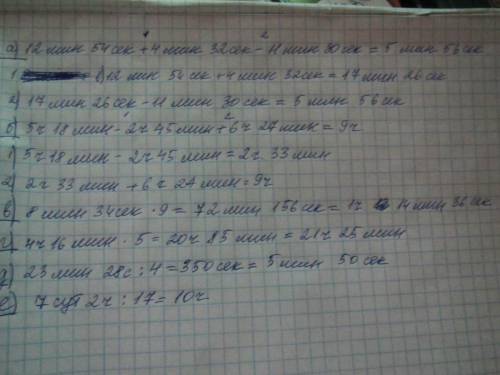 а) 12 мин 54 сек + 4 мин 32 сек - 11 мин 30 сек = 5 мин 56 сек
1) 12 мин 54 сек + 4 мин 32 сек = 17 мин 26 сек
2) 17 мин 26 сек - 11 мин 30 сек = 5 мин 56 сек
б) 5 ч 18 мин - 2 ч 45 мин + 6 ч 27 мин = 9 ч
1) 5 ч 18 мин - 2 ч 45 мин = 2 ч. 33 мин
2) 2 ч 33 мин + 6 ч 27 мин = 9 ч
в) 8 мин 34 сек · 9 = 72 мин 156 сек = 1 ч 14 мин 36 сек
г) 4 ч 16 мин · 5 = 20 ч 85 мин = 21 ч 25 мин
д) 23 мин 28 с : 4 = 350 сек = 5 мин 50 сек
е) 7 сут 2 ч : 17 = 10 ч